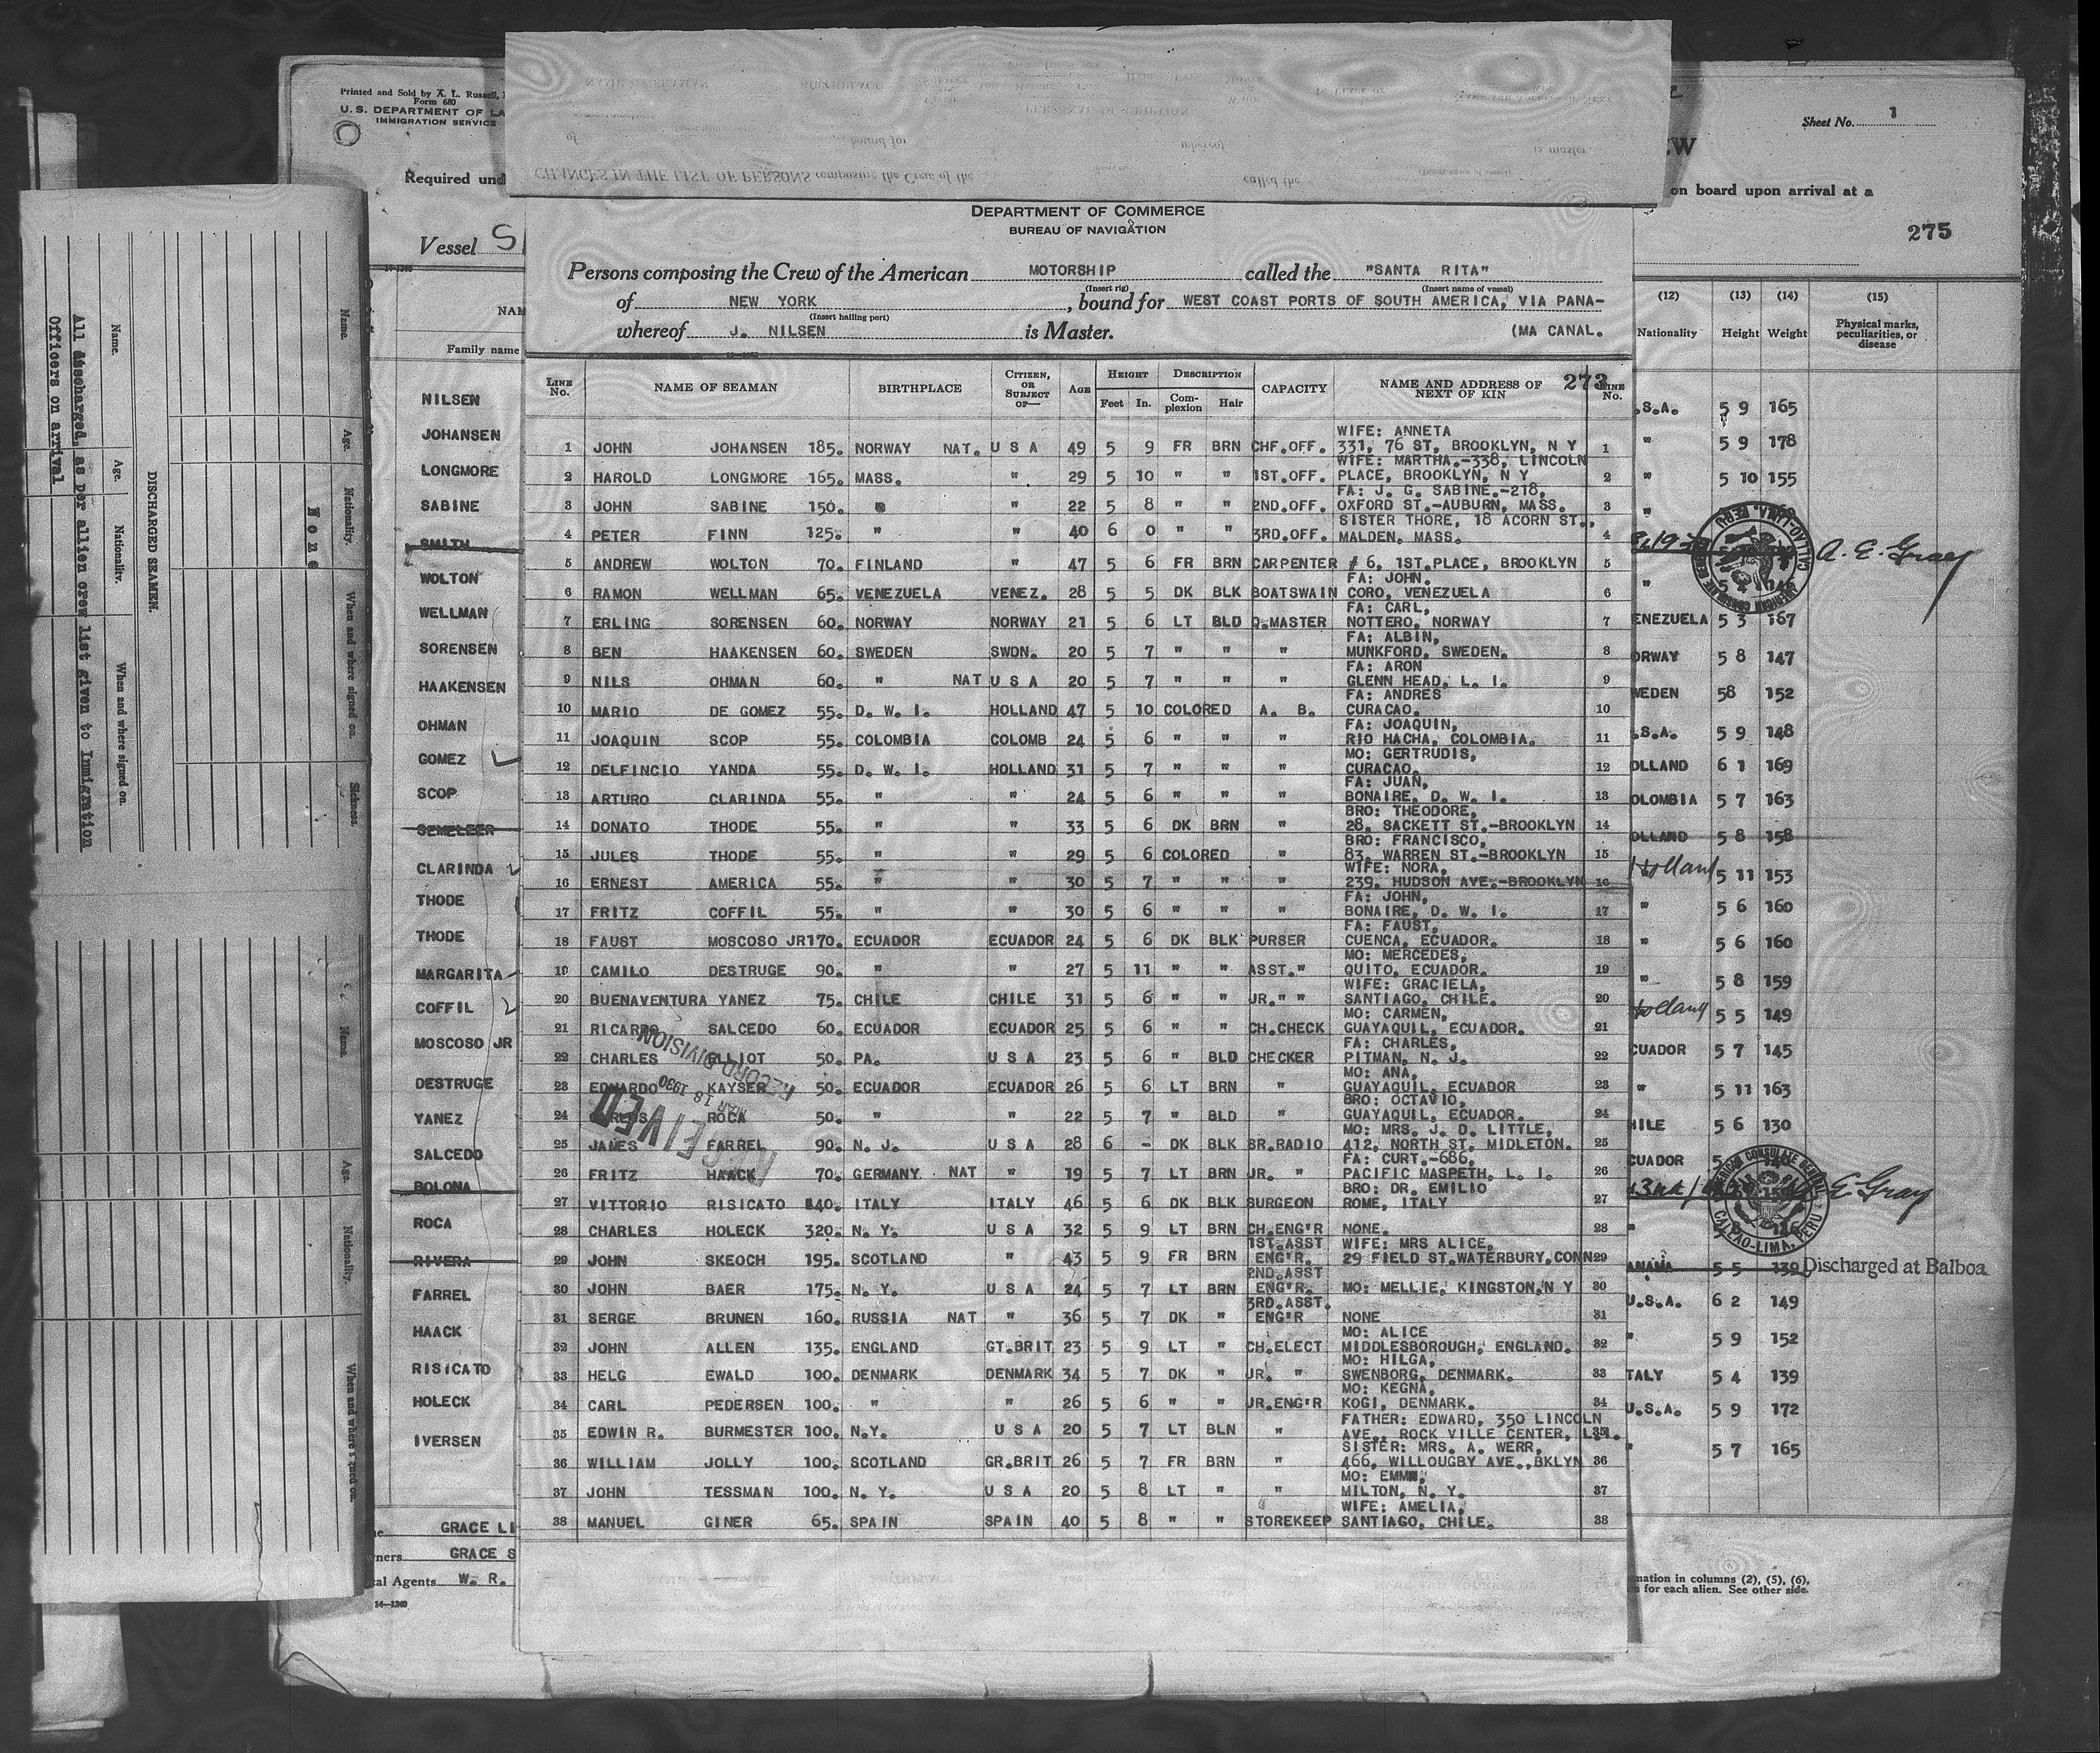 Printed and Sold by A. L. Russell,
Form 680
U. S. DEPARTMENT OF LA
IMMIGRATION SERVICE
Required und
Vessel S
NAM
Family name
NILSEN
JOHANSEN
LONGMORE
SABINE
SMITH
WOLTON
WELLMAN
SORENSEN
HAAKENSEN
OHMAN
GOMEZ
SCOP
SEMELEER
CLARINDA
THODE
THODE
MARGARITA
COFFIL
MOSCOSO JR
DESTRUGE
YANEZ
SALCEDO
BOLONA
ROCA
RIVERA
FARREL
HAACK
RISICATO
HOLECK
IVERSEN
GRACE LI
ners GRACE S
al Agents W. R.
14-1240
All discharged, as per allien crew list given to Immigration
Officers on arrival
DISCHARGED SEAMEN.
Name. Age. Nationality. When and where signed on.
None
Name. Age. Nationality. When and where signed on. Sickness.
Name. Age. Nationality. When and where signed on.
CHANGES IN THE LIST OF PERSONS composing the Crew of the called the
of bound for whereof is master
DEPARTMENT OF COMMERCE
BUREAU OF NAVIGATION
Persons composing the Crew of the American MOTORSHIP called the "SANTA RITA"
(Insert rig) (Insert name of vessel)
of NEW YORK, bound for WEST COAST PORTS OF SOUTH AMERICA, VIA PANA-
(Insert hailing port)
whereof J. NILSEN is Master. (MA CANAL.
LINE No. NAME OF SEAMAN BIRTHPLACE CITIZEN, OR SUBJECT OF— AGE HEIGHT Feet In. DESCRIPTION Complexion Hair CAPACITY NAME AND ADDRESS OF NEXT OF KIN 273 LINE No.
WIFE: ANNETA
1 JOHN JOHANSEN 185. NORWAY NAT. U S A 49 5 9 FR BRN CHF.OFF. 331, 76 ST, BROOKLYN, N Y 1
WIFE: MARTHA.-338, LINCOLN
2 HAROLD LONGMORE 165. MASS. " 29 5 10 " " 1ST.OFF. PLACE, BROOKLYN, N Y 2
FA: J. G. SABINE.-218,
3 JOHN SABINE 150. " " 22 5 8 " " 2ND.OFF. OXFORD ST.-AUBURN, MASS. 3
SISTER THORE, 18 ACORN ST.,
4 PETER FINN 125. " " 40 6 0 " " 3RD.OFF. MALDEN, MASS. 4
5 ANDREW WOLTON 70. FINLAND " 47 5 6 FR BRN CARPENTER # 6, 1ST.PLACE, BROOKLYN 5
FA: JOHN.
6 RAMON WELLMAN 65. VENEZUELA VENEZ. 28 5 5 DK BLK BOATSWAIN CORO, VENEZUELA 6
FA: CARL,
7 ERLING SORENSEN 60. NORWAY NORWAY 21 5 6 LT BLD Q.MASTER NOTTERO, NORWAY 7
FA: ALBIN,
8 BEN HAAKENSEN 60. SWEDEN SWDN. 20 5 7 " " " MUNKFORD, SWEDEN. 8
FA: ARON
9 NILS OHMAN 60. " NAT U S A 20 5 7 " " " GLENN HEAD, L. I. 9
FA: ANDRES
10 MARIO DE GOMEZ 55. D. W. I. HOLLAND 47 5 10 COLORED A. B. CURACAO. 10
FA: JOAQUIN,
11 JOAQUIN SCOP 55. COLOMBIA COLOMB 24 5 6 " " " RIO HACHA, COLOMBIA. 11
MO: GERTRUDIS,
12 DELFINCIO YANDA 55. D. W. I. HOLLAND 31 5 7 " " " CURACAO. 12
FA: JUAN,
13 ARTURO CLARINDA 55. " " 24 5 6 " " " BONAIRE, D. W. I. 13
BRO: THEODORE,
14 DONATO THODE 55. " " 33 5 6 DK BRN " 28, SACKETT ST.-BROOKLYN 14
BRO: FRANCISCO,
15 JULES THODE 55. " " 29 5 6 COLORED " 83, WARREN ST.-BROOKLYN 15
WIFE: NORA,
16 ERNEST AMERICA 55. " " 30 5 7 " " " 239, HUDSON AVE.-BROOKLYN 16
FA: JOHN,
17 FRITZ COFFIL 55. " " 30 5 6 " " " BONAIRE, D. W. I. 17
FA: FAUST,
18 FAUST MOSCOSO JR 170. ECUADOR ECUADOR 24 5 6 DK BLK PURSER CUENCA, ECUADOR. 18
MO: MERCEDES,
19 CAMILO DESTRUGE 90. " " 27 5 11 " " ASST." QUITO, ECUADOR. 19
WIFE: GRACIELA,
20 BUENAVENTURA YANEZ 75. CHILE CHILE 31 5 6 " " JR." " SANTIAGO, CHILE. 20
MO: CARMEN,
21 RICARDO SALCEDO 60. ECUADOR ECUADOR 25 5 6 " " CH.CHECK GUAYAQUIL, ECUADOR. 21
FA: CHARLES,
22 CHARLES ELLIOT 50. PA. U S A 23 5 6 " BLD CHECKER PITMAN, N. J. 22
MO: ANA,
23 EDUARDO KAYSER 50. ECUADOR ECUADOR 26 5 6 LT BRN " GUAYAQUIL, ECUADOR 23
BRO: OCTAVIO,
24 CARLOS ROCA 50. " " 22 5 7 " BLD " GUAYAQUIL, ECUADOR. 24
MO: MRS. J. D. LITTLE,
25 JAMES FARREL 90. N. J. U S A 28 6 - DK BLK SR.RADIO 412, NORTH ST. MIDLETON. 25
FA: CURT.-686,
26 FRITZ HAACK 70. GERMANY. NAT " 19 5 7 LT BRN JR. " PACIFIC MASPETH, L. I. 26
BRO: DR. EMILIO
27 VITTORIO RISICATO 140. ITALY ITALY 46 5 6 DK BLK SURGEON ROME, ITALY 27
28 CHARLES HOLECK 320. N. Y. U S A 32 5 9 LT BRN CH.ENG'R NONE. 28
1ST.ASST WIFE: MRS ALICE,
29 JOHN SKEOCH 195. SCOTLAND " 43 5 9 FR BRN ENG'R. 29 FIELD ST.WATERBURY,CONN 29
2ND.ASST
30 JOHN BAER 175. N. Y. U S A 24 5 7 LT BRN ENG'R. MO: MELLIE, KINGSTON,N Y 30
3RD.ASST.
31 SERGE BRUNEN 160. RUSSIA NAT " 36 5 7 DK " ENG'R NONE 31
MO: ALICE
32 JOHN ALLEN 135. ENGLAND GT.BRIT 23 5 9 LT " CH.ELECT MIDDLESBOROUGH, ENGLAND. 32
MO: HILGA,
33 HELG EWALD 100. DENMARK DENMARK 34 5 7 DK " JR. " SWENBORG, DENMARK. 33
MO: KEGNA,
34 CARL PEDERSEN 100. " " 26 5 6 " " JR.ENG'R KOGI, DENMARK. 34
FATHER: EDWARD, 350 LINCOLN
35 EDWIN R. BURMESTER 100. N.Y. U S A 20 5 7 LT BLN " AVE., ROCK VILLE CENTER, L.I. 35
SISTER: MRS. A. WERR,
36 WILLIAM JOLLY 100. SCOTLAND GR.BRIT 26 5 7 FR BRN " 466, WILLOUGBY AVE.,BKLYN 36
MO: EMMA,
37 JOHN TESSMAN 100. N. Y. U S A 20 5 8 LT " " MILTON, N. Y. 37
WIFE: AMELIA,
38 MANUEL GINER 65. SPAIN SPAIN 40 5 8 " " STOREKEEP SANTIAGO, CHILE. 38
RECEIVED
MAR 18 1930
RECORD DIVISION
Sheet No. 1
EW
on board upon arrival at a
275
(12) (13) (14) (15)
Nationality Height Weight Physical marks, peculiarities, or disease
.S.A. 5 9 165
" 5 9 178
" 5 10 155
"
A. E. Gray
AMERICAN CONSULATE GENERAL
CALLAO-LIMA, PERU
"
ENEZUELA 5 3 167
ORWAY 5 8 147
WEDEN 58 152
.S.A. 5 9 148
OLLAND 6 1 169
OLOMBIA 5 7 163
OLLAND 5 8 158
Holland 5 11 153
" 5 6 160
" 5 6 160
" 5 8 159
Holland 5 5 149
CUADOR 5 7 145
" 5 11 163
HILE 5 6 130
CUADOR 5
E Gray
AMERICAN CONSULATE GENERAL
CALLAO-LIMA, PERU
ANAMA 5 5 139 Discharged at Balboa
U.S.A. 6 2 149
" 5 9 152
TALY 5 4 139
U.S.A. 5 9 172
" 5 7 165
mation in columns (2), (5), (6),
for each alien. See other side.